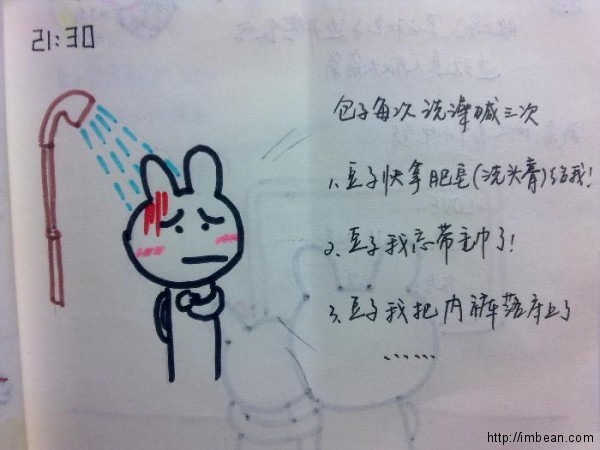 21:30
包子每次洗澡喊三次
1、豆子快拿肥皂(洗头膏)给我!
2、豆子我忘带毛巾了!
3、豆子我把内裤落床上了
……
http://imbean.com